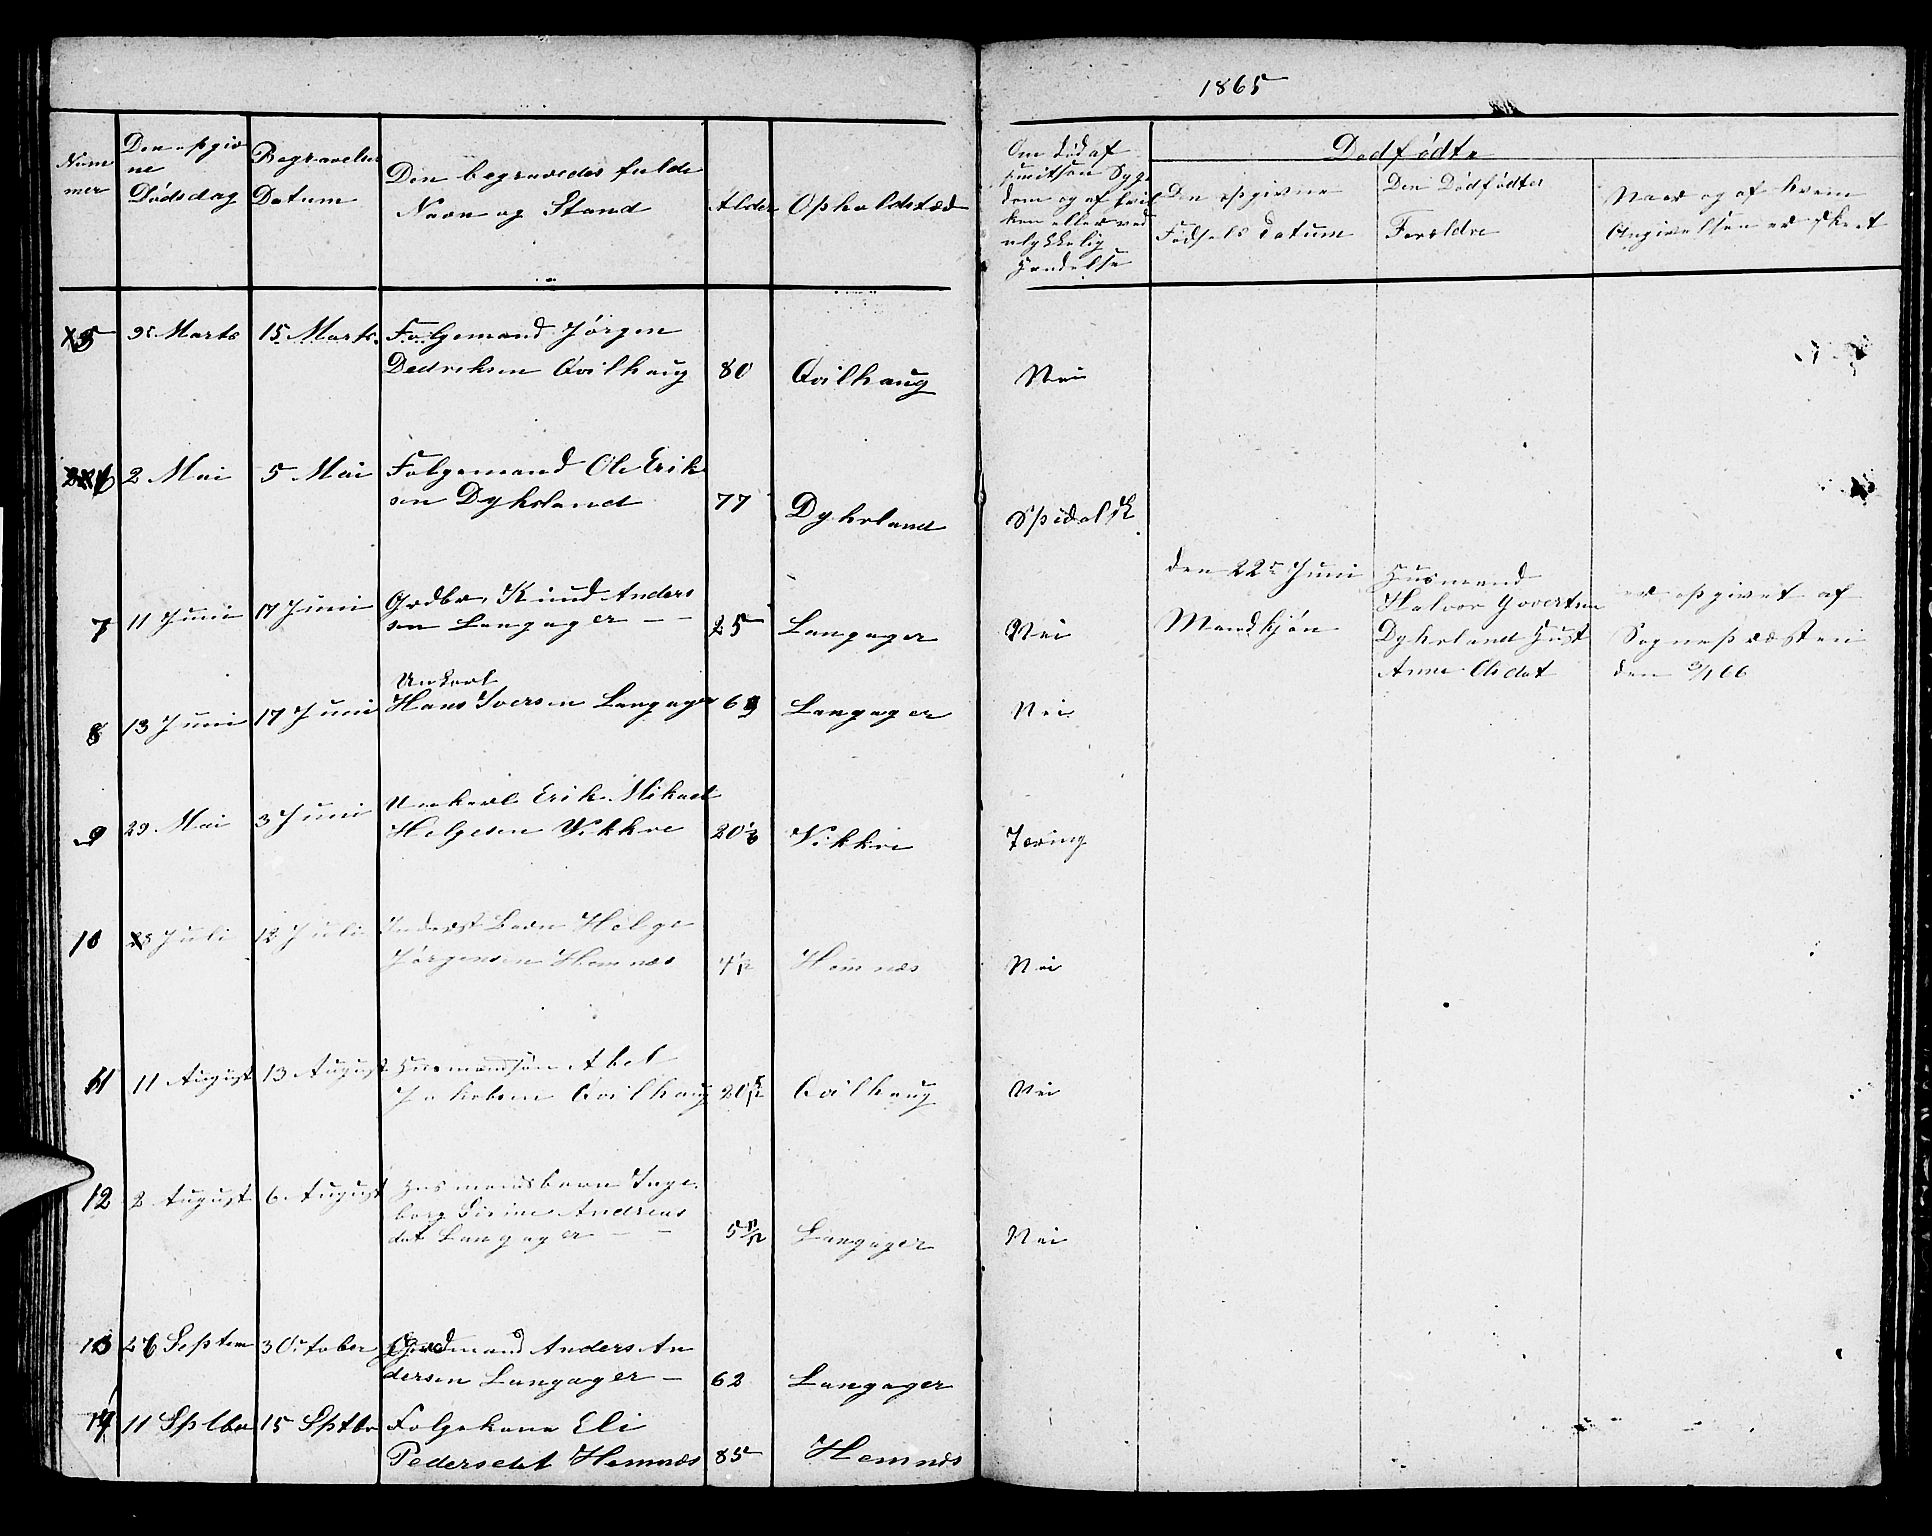 1865
Num
mer
Den opgiv
ne
Dødsdag
Begravelses
Datum
Den begravedes fulde
Navn og Stand
Alder
Opholdstæd
Om død af
smitsom Syg
dom og af hvil
ken eller ved
ulykkelig
Hændelse
Dødfødte
Den opgivne
Fødsels datum
Den Dødfødtes
Forældre
Naar og af hvem
Angivelsen er skeet
5 9de Marts 15 Marts Følgemand Jørgen
Dedriksen Qvilhaug 80 Qvilhaug Nei
6 2 Mai 5 Mai Følgemand Ole Erik
sen Dykesland 77 Dykesland Spedalsk.
7 11 Juni 17 Juni Grdbr. Knud Anders
sen Langager — — 25 Langager Nei
den 22de Juni
Mandkjøn
Husmand
Halvor Govertsen
Dykesland Hust
Anne Olsdat
er opgivet af
Sognepræsten
den 3/1 66
8 13 Juni 17 Juni Unkarl
Hans Iversen Langager 69 Langager Nei
9 29 Mai 3 Juni Unkarl Erik Mikael
Helgesen Vikkre 20 Vikkre Tæring
10 8 Juli 12 Juli Inderst Barn Helge
Jørgensen Hemnæs 4/12 Hemnæs Nei
11 11 August 13 August Husmandsøn Abel
Jakobsen Qvilhaug 20 5/12 Qvilhaug Nei
12 2 August 6 August Husmandsbarn Inge
borg Sirine Andreas
dat Langager — — 5 11/12 Langager Nei
13 26 Septem 3 October Grdmand Anders An
dersen Langager — 62 Langager
14 11 Sptbr 15 Sptbr Følgekone Eli
Pedersdat Hemnæs 85 Hemnæs